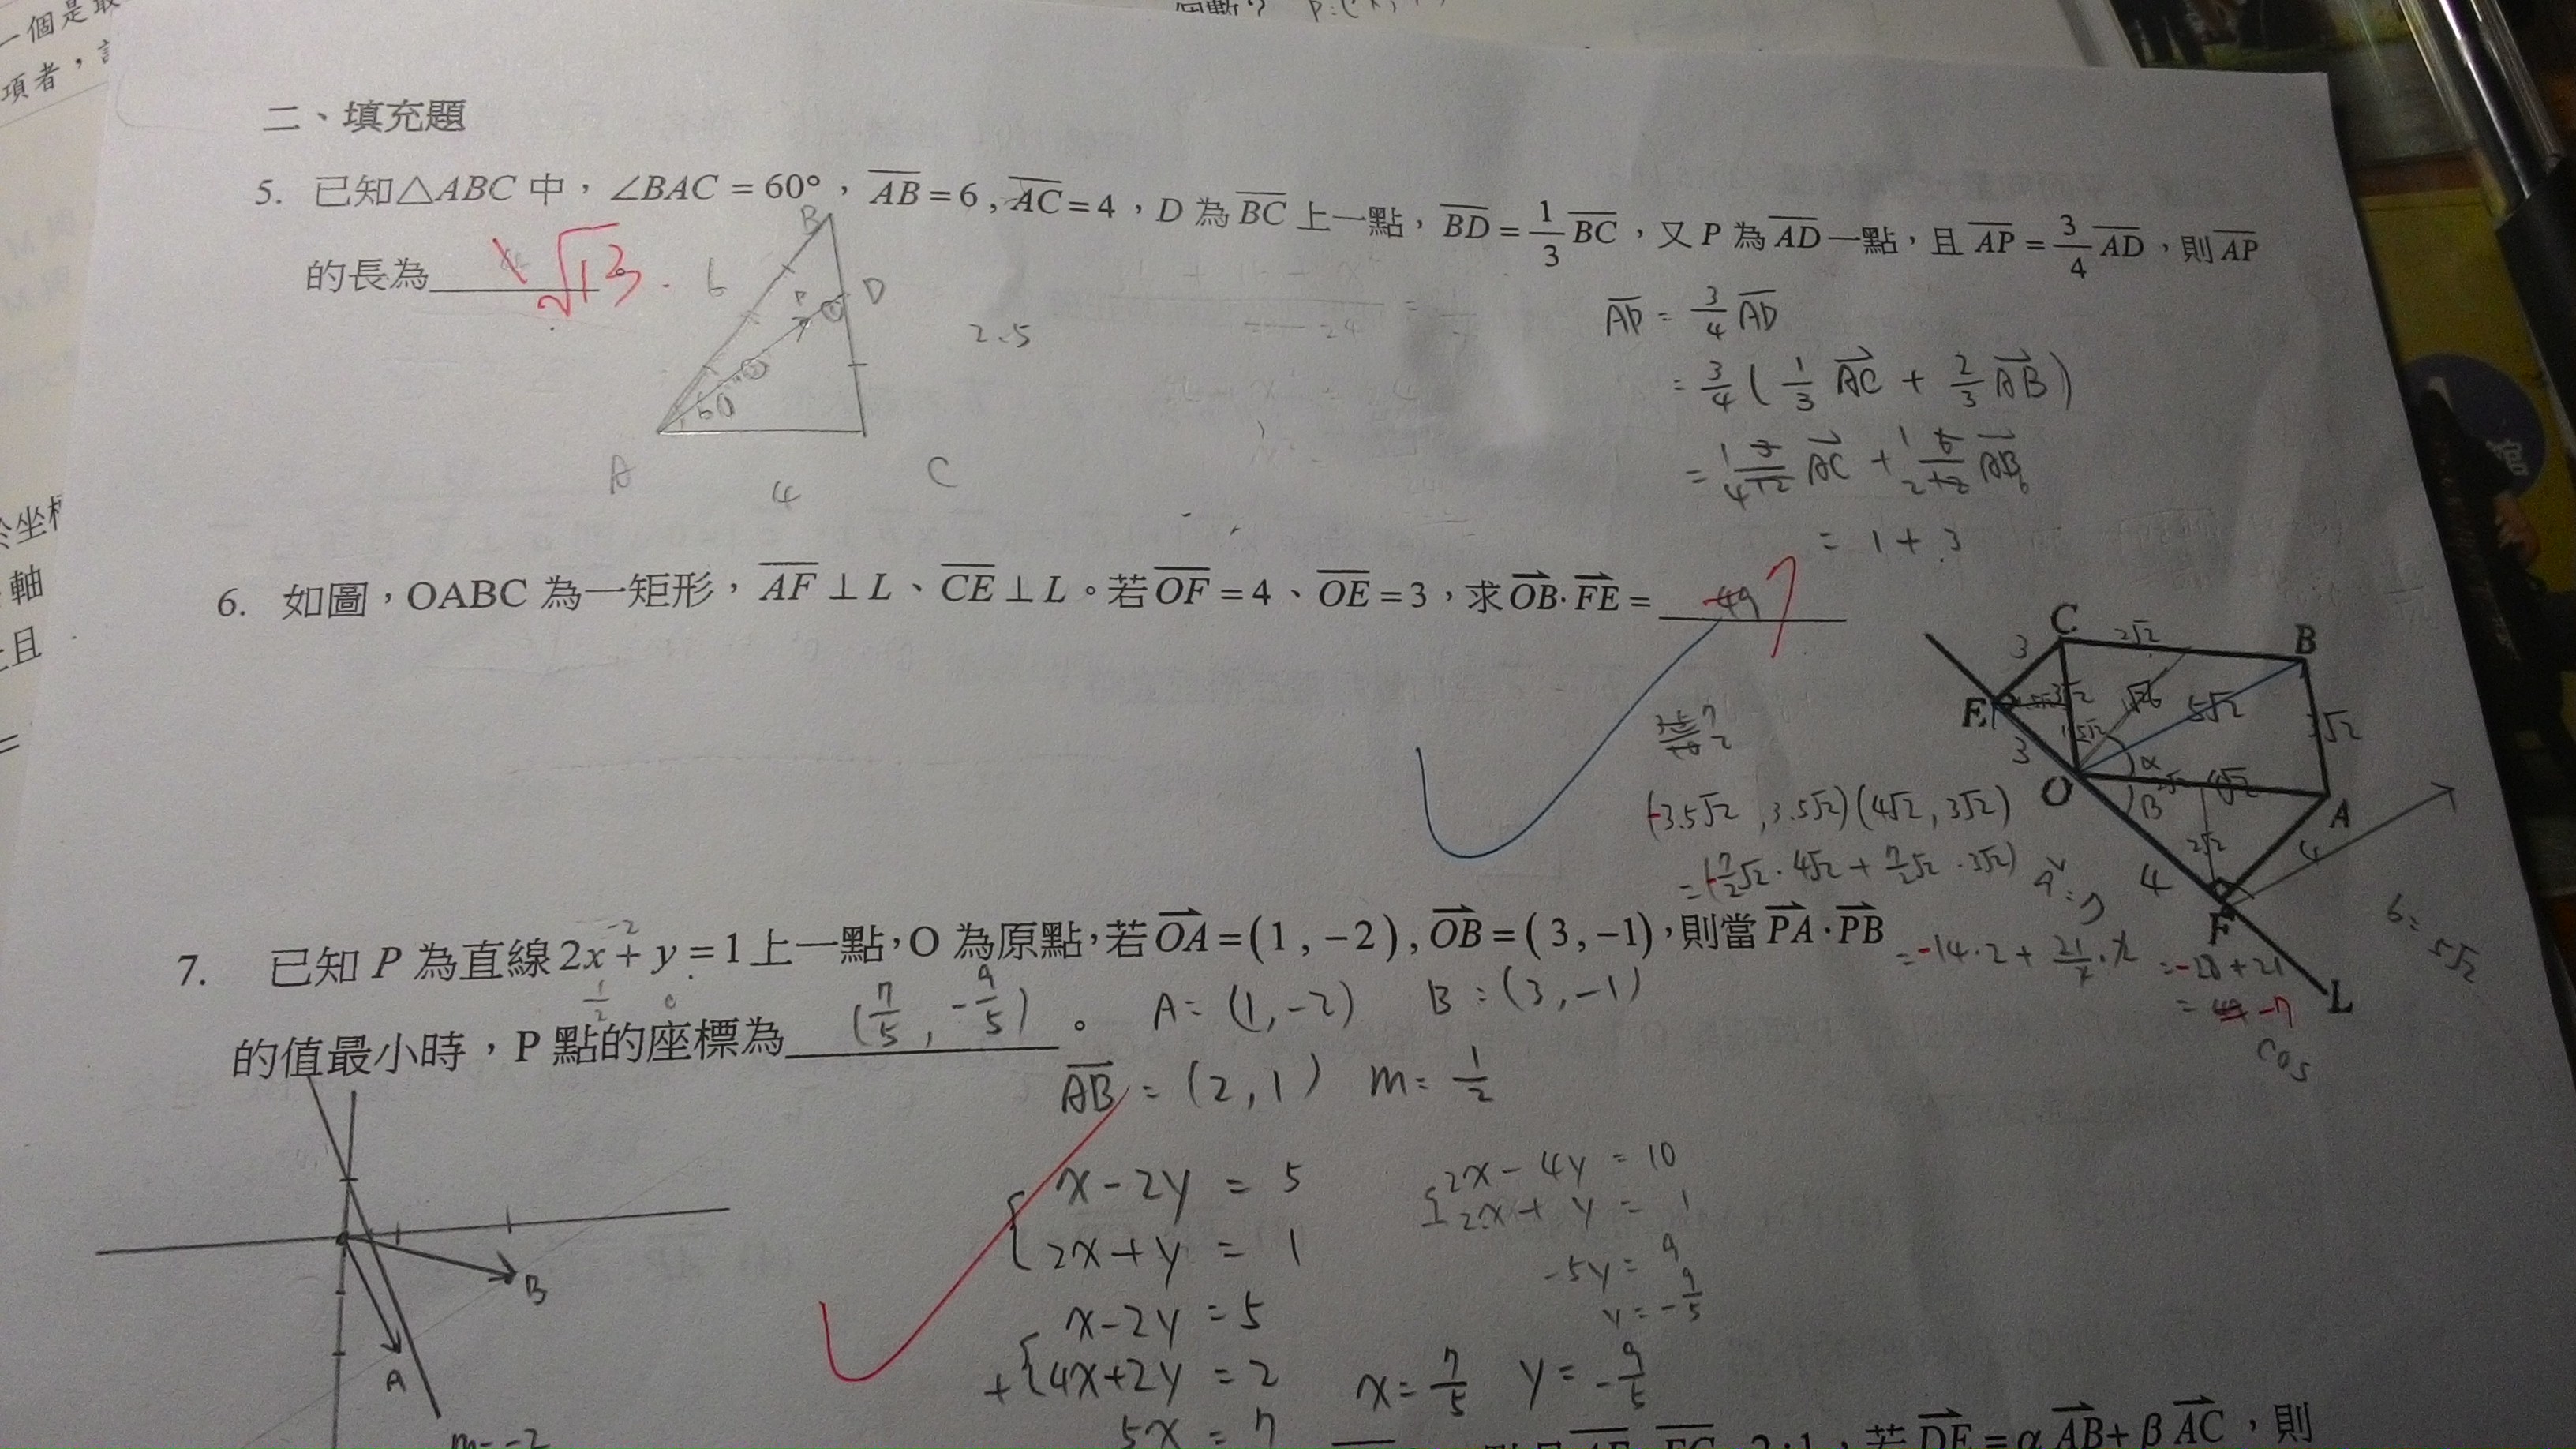 一個是最
項者，
個數？ P=(
二、填充題
5. 已知△ABC 中，∠BAC = 60°，AB = 6 , AC = 4，D 為 BC 上一點，BD = 1/3 BC，又 P 為 AD 一點，且 AP = 3/4 AD，則 AP
的長為 √13 .
B
6
P
D
60
A
4
C
2.5
AP = 3/4 AD
= 3/4 ( 1/3 AC + 2/3 AB )
= 1/4 AC + 1/2 AB
= 1 + 3
於坐標
軸
且
6. 如圖，OABC 為一矩形，AF ⊥ L、CE ⊥ L。若 OF = 4、OE = 3，求 OB · FE = -49 7
C
2√2
B
3
E
5√2
3√2
3
O
α
4√2
A
β
2√2
4
4
F
L
(-3.5√2 , 3.5√2)(4√2, 3√2)
= (-7/2√2 · 4√2 + 7/2√2 · 3√2)
= -14·2 + 21/2·2 = -28 + 21
= 49 -7
cos
5√2
7. 已知 P 為直線 2x + y = 1 上一點，O 為原點，若 OA = (1 , −2) , OB = (3 , −1)，則當 PA · PB
的值最小時，P 點的座標為 (7/5 , -9/5) 。 A = (1, -2) B = (3, -1)
AB = (2, 1) m = 1/2
x - 2y = 5
2x + y = 1
2x - 4y = 10
2x + y = 1
-5y = 9
y = -9/5
x - 2y = 5
+ 4x + 2y = 2
5x = 7
x = 7/5 y = -9/5
B
A
m = -2
2:1，若 DE = α AB + β AC，則